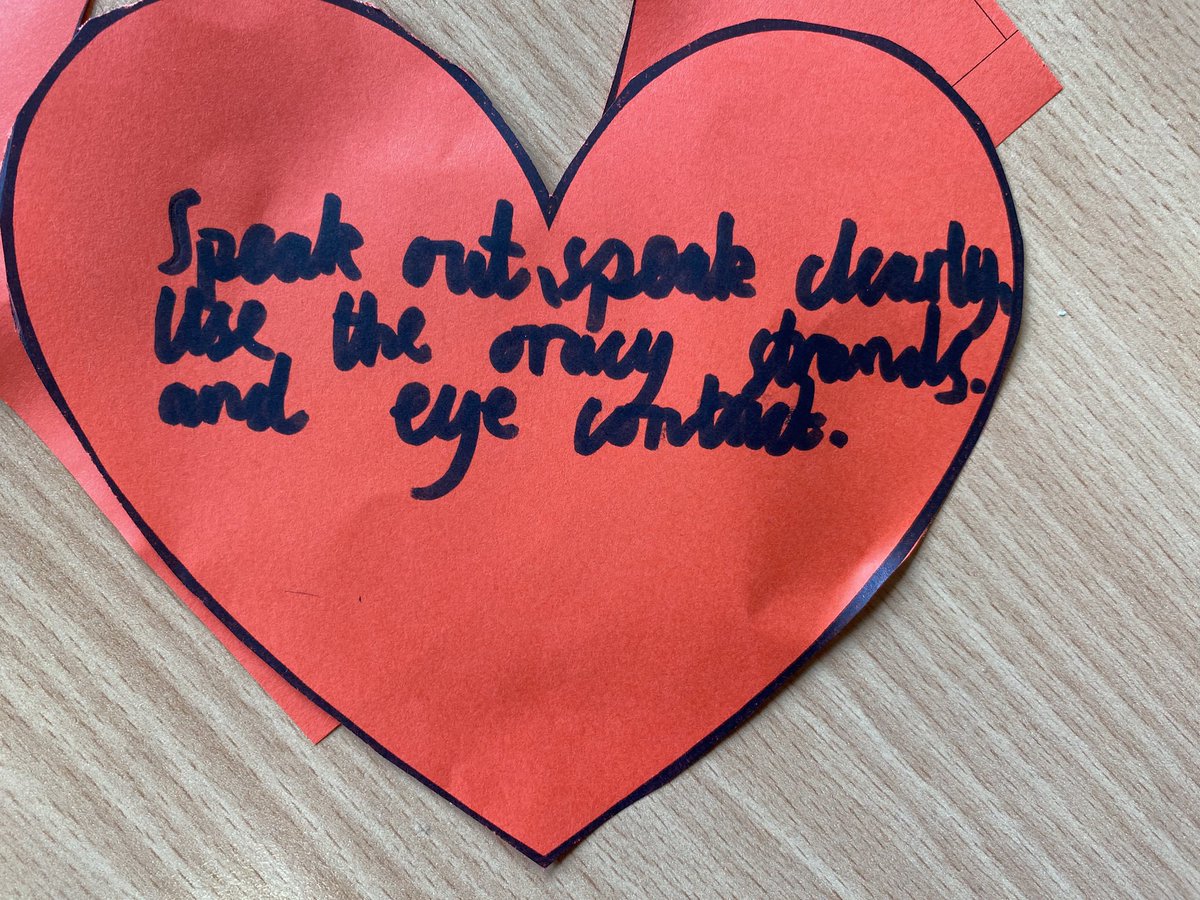 Speak out, speak clearly.
Use the oracy strands.
and eye contact.